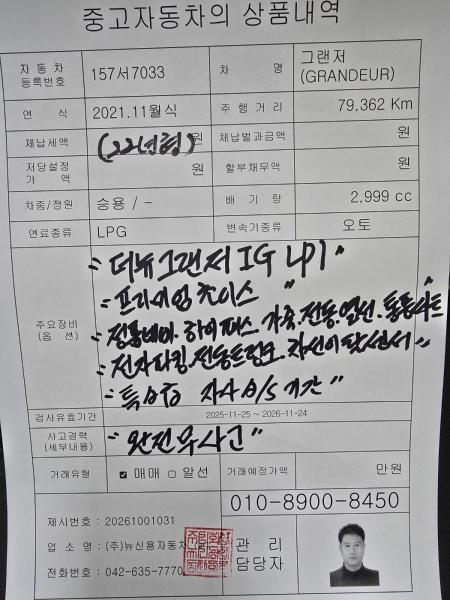 중고자동차의 상품내역
자동차등록번호 157서7033 차 명 그랜저(GRANDEUR)
연 식 2021.11월식 주행거리 79,362 Km
체납세액 원 체납벌과금액 원
(22년형)
저당설정가 액 원 할부채무액 원
차종/정원 승용 / - 배 기 량 2,999 cc
연료종류 LPG 변속기종류 오토
주요장비(옵 션)
더뉴그랜저 IG LPI
프리미엄 초이스
정품네비. 하이패스. 가죽.전동.열선.통풍시트
전자파킹.전동트렁크.차선이탈.센서
특A급 차사 A/S 기간
검사유효기간 2025-11-25 ~ 2026-11-24
사고경력(세부내용) 완전무사고
거래유형 ☑ 매매 □ 알선 거래예정가액 만원
010-8900-8450
제시번호 : 20261001031
업 소 명 : (주)뉴신용자동차
전화번호 : 042-635-7770
관 리
담당자